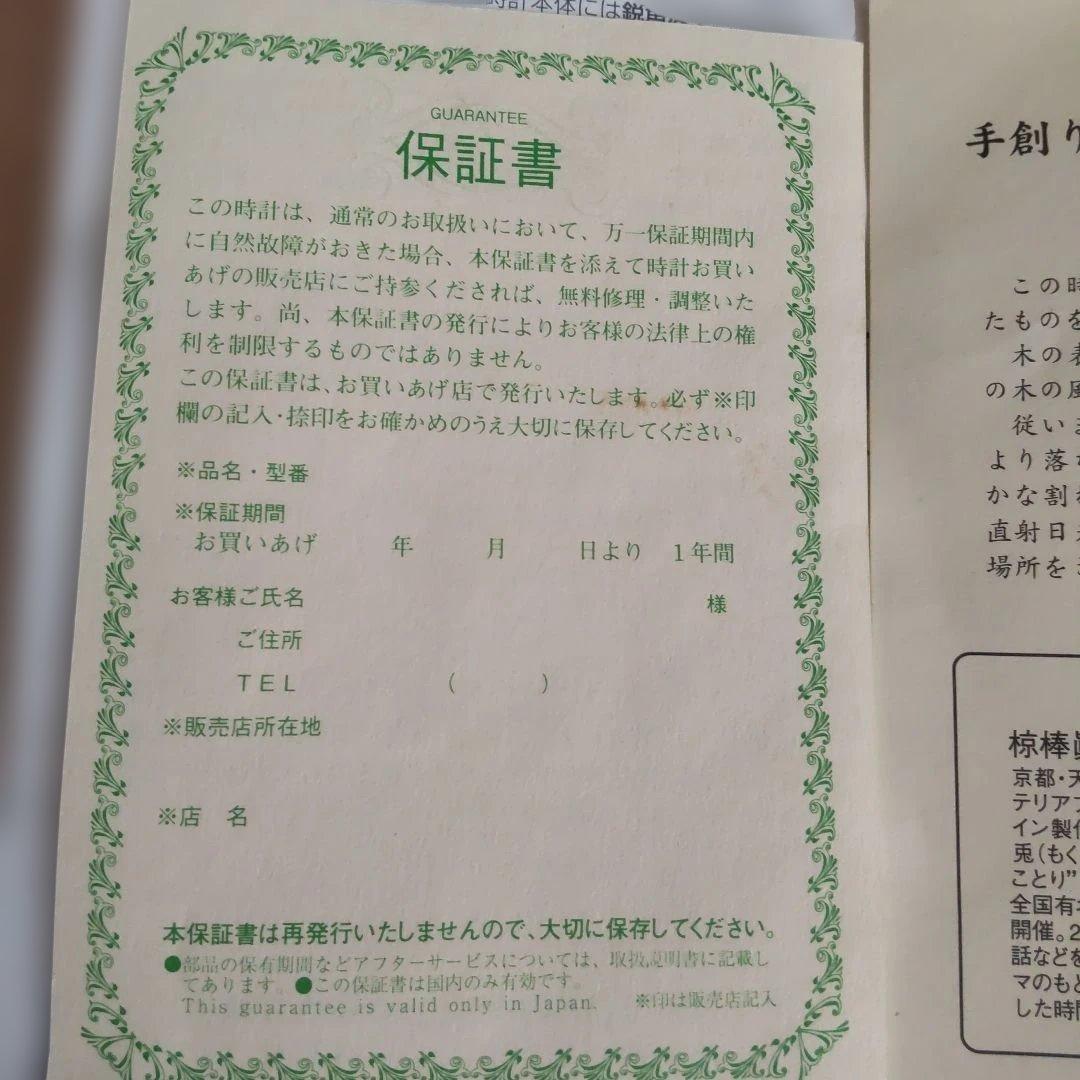 時計本体には鋭
GUARANTEE
保証書
この時計は、通常のお取扱いにおいて、万一保証期間内
に自然故障がおきた場合、本保証書を添えて時計お買い
あげの販売店にご持参くだされば、無料修理・調整いた
します。尚、本保証書の発行によりお客様の法律上の権
利を制限するものではありません。
この保証書は、お買いあげ店で発行いたします。必ず※印
欄の記入・捺印をお確かめのうえ大切に保存してください。
※品名・型番
※保証期間
お買いあげ 年 月 日より 1年間
お客様ご氏名 様
ご住所
TEL ( )
※販売店所在地
※店 名
本保証書は再発行いたしませんので、大切に保存してください。
●部品の保有期間などアフターサービスについては、取扱説明書に記載し
てあります。●この保証書は国内のみ有効です。
This guarantee is valid only in Japan. ※印は販売店記入
手創り
この時
たものを
木の表
の木の風
従いま
より落ち
かな割
直射日
場所を
椋棒
京都・天
テリア
イン製作
兎(もく
ことり”
全国有
開催。2
話などを
マのもと
した時間